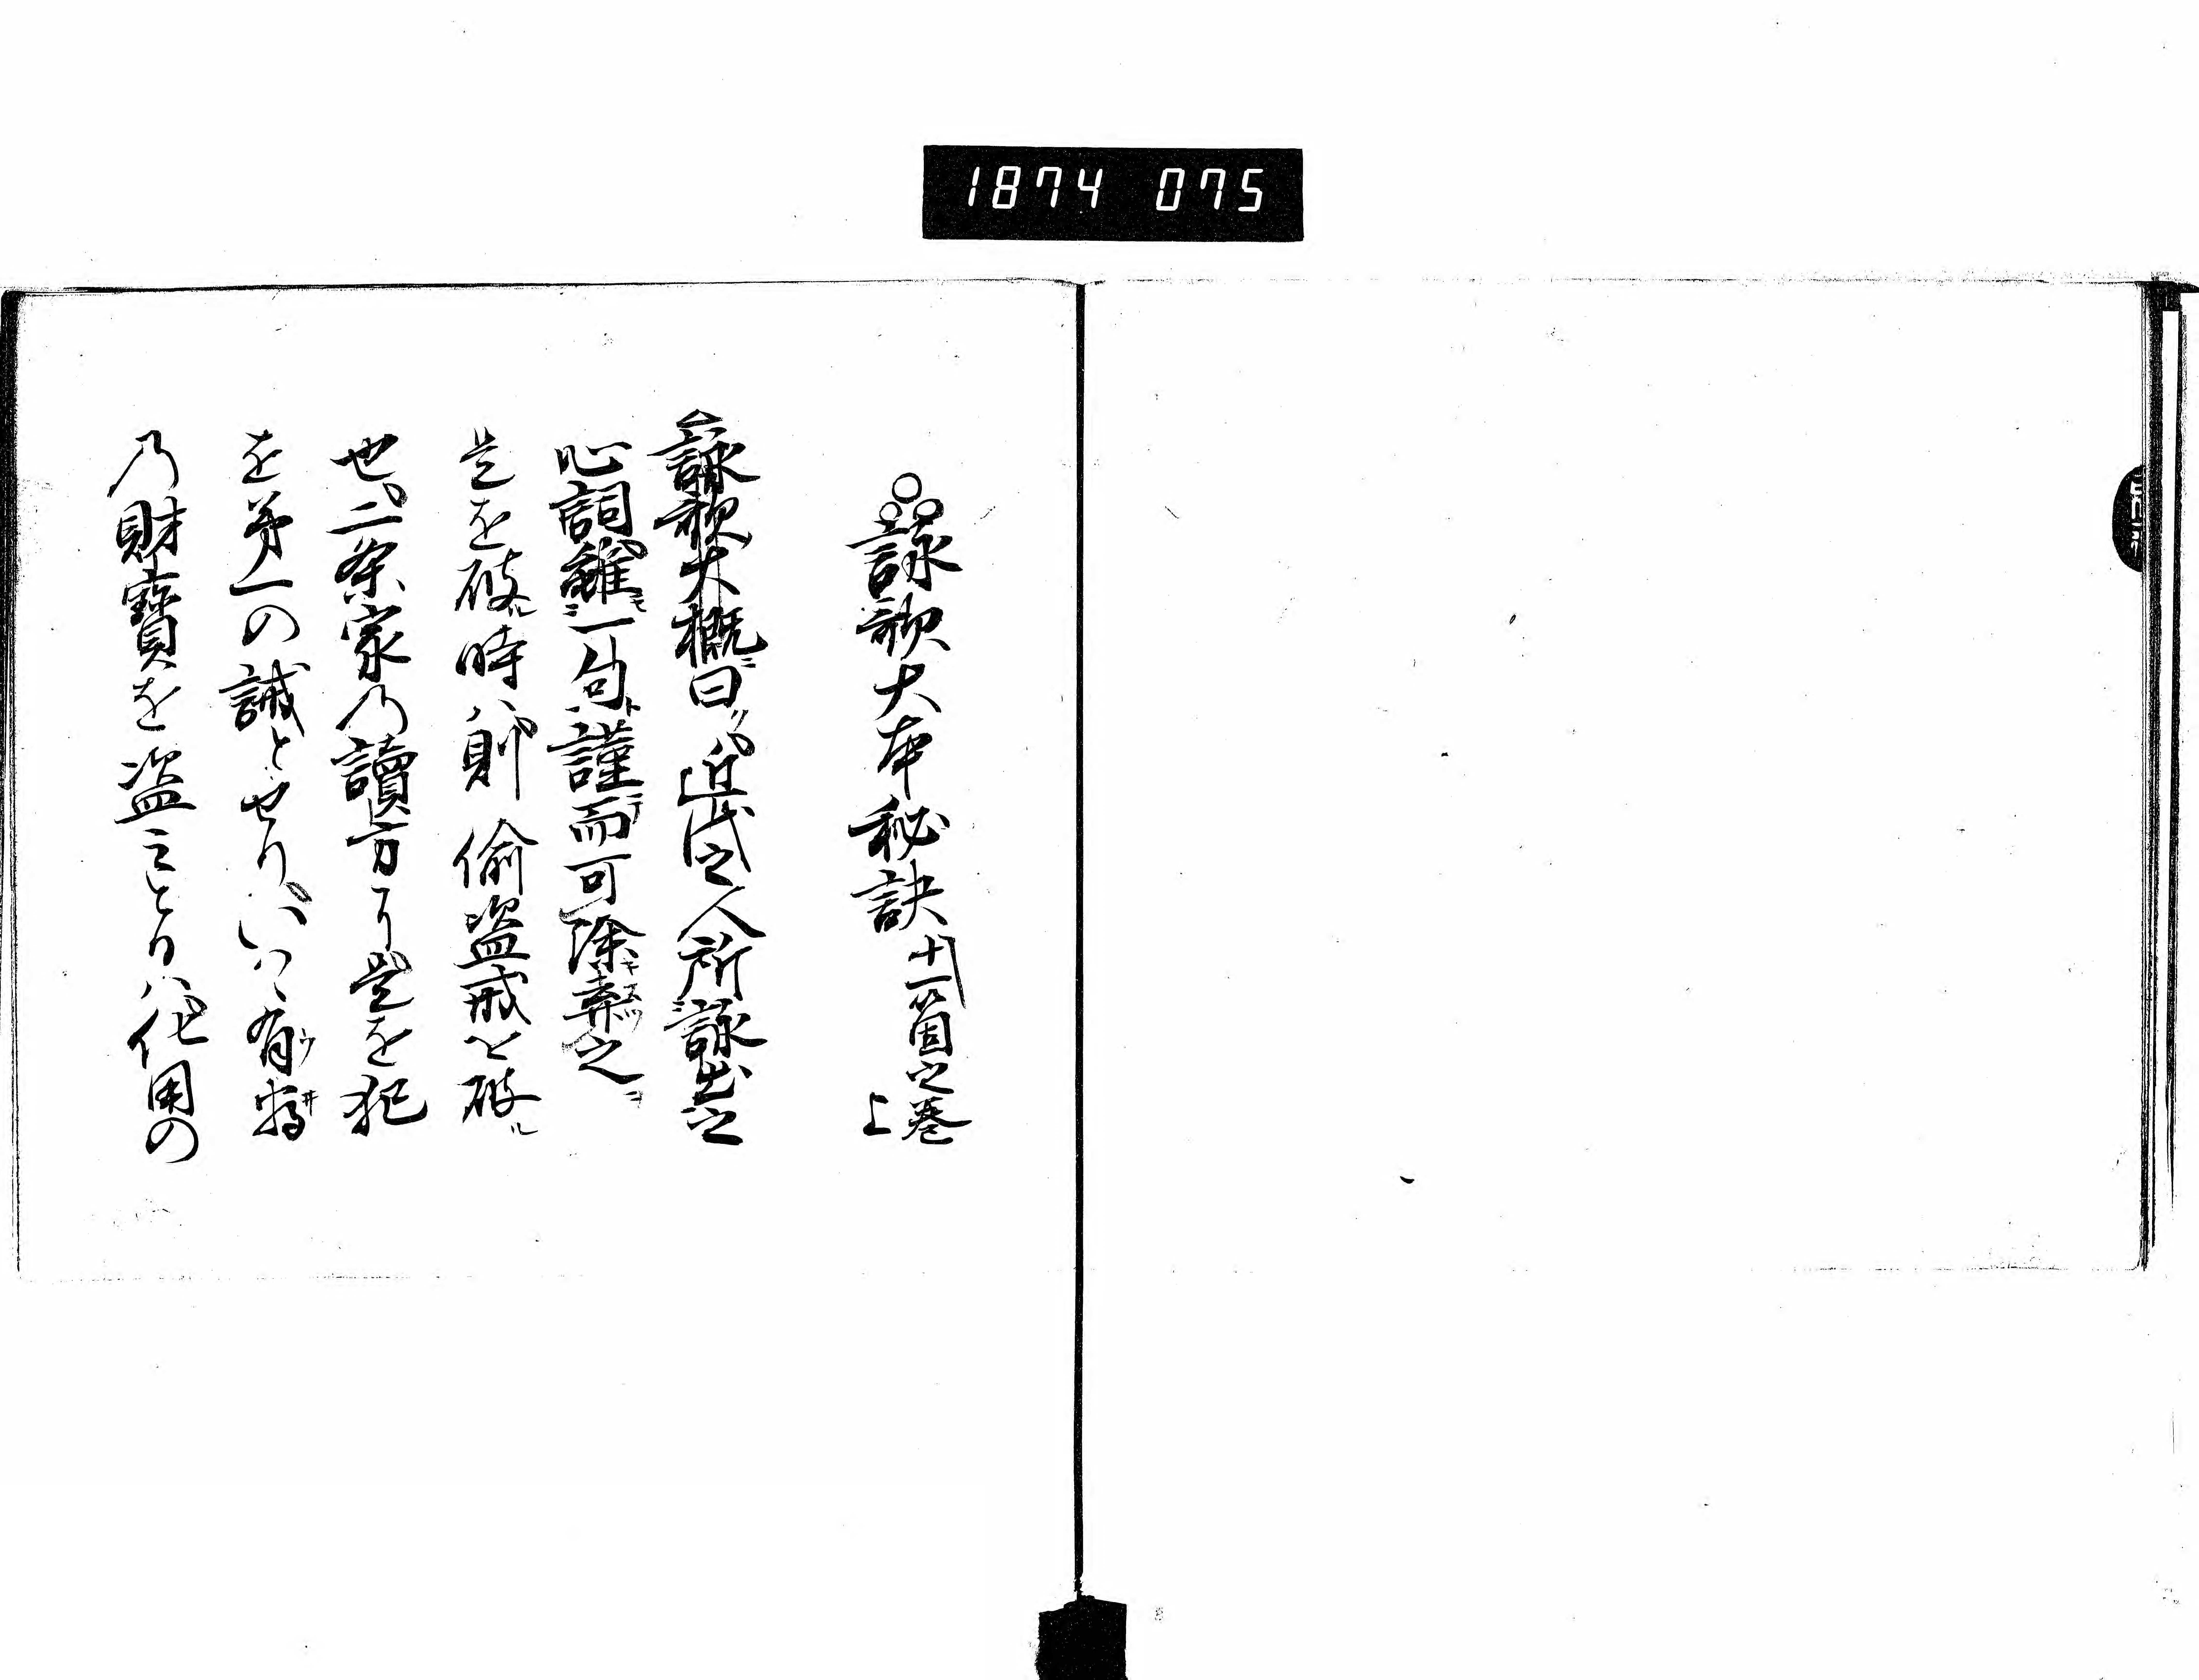 1874 075
詠歌大本秘訣 十一箇之巻 上
詠歌大概曰近代之人所詠出之
心詞雖一句謹而可除棄之
是を破ル時ハ則偸盗戒を破ル
也二条家乃讀方ニ是を犯
を第一の誡とせりいはゝ有
乃財寶を盗ことハ他用の